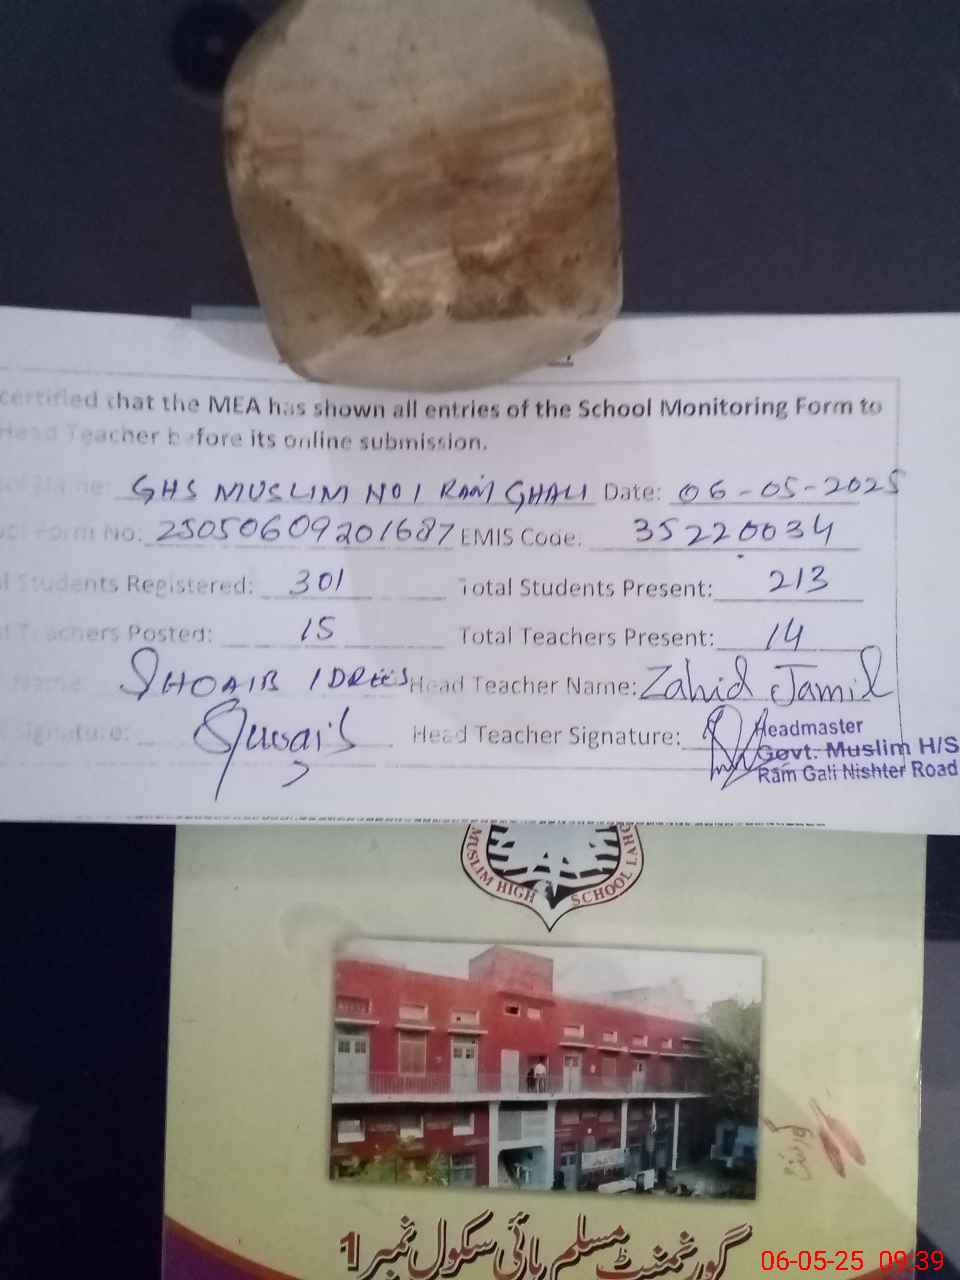 certified that the MEA has shown all entries of the School Monitoring Form to
Head Teacher before its online submission.
Name: GHS MUSLIM NO 1 RAM GHALI Date: 06-05-2025
Form No: 25050609201687 EMIS Code: 35220034
Students Registered: 301 Total Students Present: 213
Teachers Posted: 15 Total Teachers Present: 14
Name: SHOAIB IDREES Head Teacher Name: Zahid Jamil
Signature: Shoaib Head Teacher Signature:
Headmaster
Govt. Muslim H/S
Ram Gali Nishter Road
MUSLIM HIGH SCHOOL
گورنمنٹ
گورنمنٹ مسلم ہائی سکول نمبر 1
06-05-25 09:39